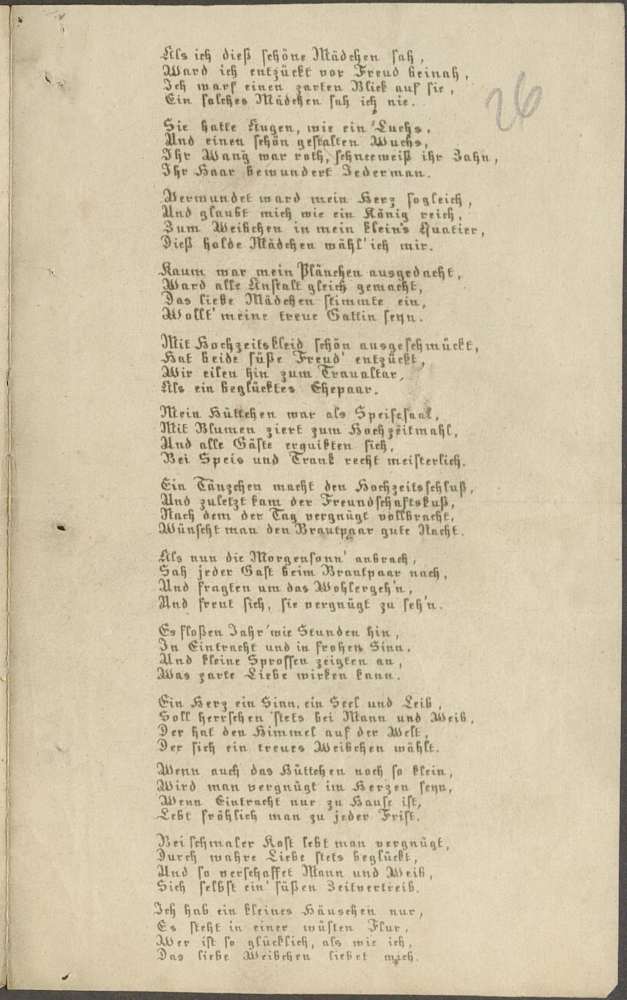 Als ich dieß schöne Mädchen sah,
Ward ich entzückt vor Freud beinah,
Ich warf einen zarten Blick auf sie,
Ein solches Mädchen sah ich nie.
26
Sie hatte Augen, wie ein Luchs,
Und einen schön gestalten Wuchs,
Ihr Wang war roth, schneeweiß ihr Zahn,
Ihr Haar bewundert Jederman.
Verwundet ward mein Herz sogleich,
Und glaubt mich wie ein König reich,
Zum Weibchen in mein klein's Quatier,
Dieß holde Mädchen wähl' ich mir.
Kaum war mein Plänchen ausgedacht,
Ward alle Anstalt gleich gemacht,
Das liebe Mädchen stimmte ein,
Wollt' meine treue Gattin seyn.
Mit Hochzeitskleid schön ausgeschmückt,
Hat beide süße Freud' entzückt,
Wir eilen hin zum Traualtar,
Als ein beglücktes Ehepaar.
Mein Hüttchen war als Speisesaal,
Mit Blumen ziert zum Hochzeitmahl,
Und alle Gäste erquikten sich,
Bei Speis und Trank recht meisterlich.
Ein Tänzchen macht den Hochzeitsschluß,
Und zuletzt kam der Freundschaftskuß,
Nach dem der Tag vergnügt vollbracht,
Wünscht man den Brautpaar gute Nacht.
Als nun die Morgensonn' anbrach,
Sah jeder Gast beim Brautpaar nach,
Und fragten um das Wohlergeh'n,
Und freut sich, sie vergnügt zu seh'n.
Es floßen Jahr' wie Stunden hin,
In Eintracht und in frohen Sinn,
Und kleine Sprossen zeigten an,
Was zarte Liebe wirken kann.
Ein Herz ein Sinn, ein Seel und Leib,
Soll herrschen stets bei Mann und Weib,
Der hat den Himmel auf der Welt,
Der sich ein treues Weibchen wählt.
Wenn auch das Hüttchen noch so klein,
Wird man vergnügt im Herzen seyn,
Wenn Eintracht nur zu Hause ist,
Lebt fröhlich man zu jeder Frist.
Bei schmaler Kost lebt man vergnügt,
Durch wahre Liebe stets beglückt,
Und so verschaffet Mann und Weib,
Sich selbst ein' süßen Zeitvertreib.
Ich hab ein kleines Häuschen nur,
Es steht in einer wüsten Flur,
Wer ist so glücklich, als wie ich,
Das liebe Weibchen liebet mich.